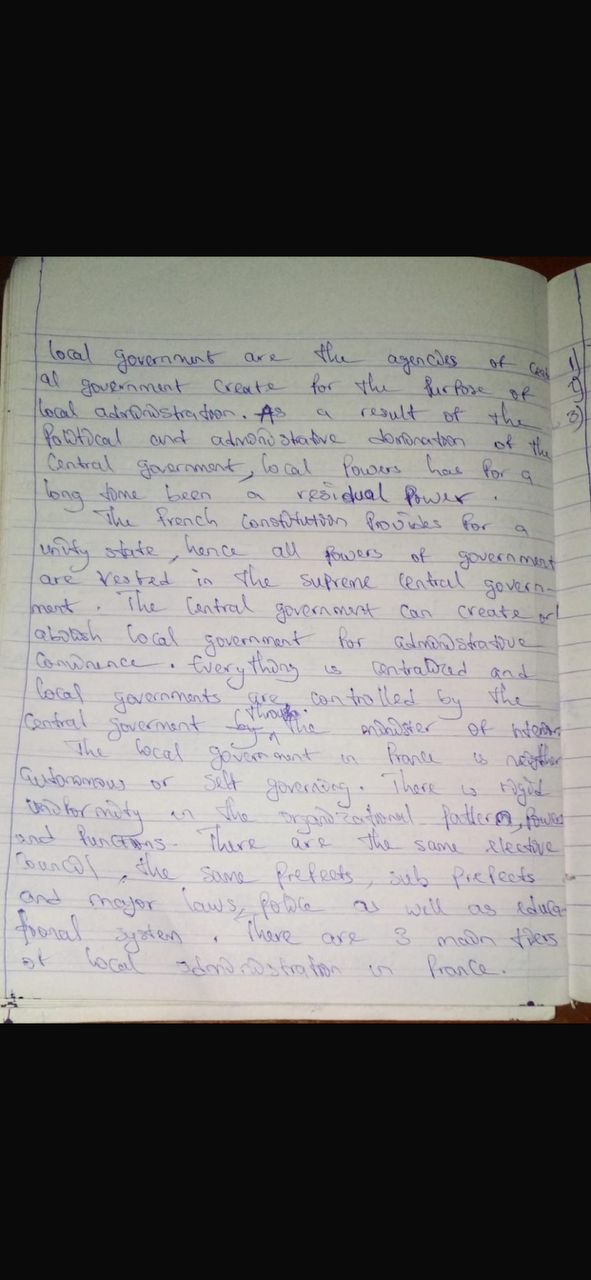 local government are the agencies of
al government create for the purpose of
local administration. As a result of the
Political and administative domination of the
Central government, local Powers has for a
long time been a residual Power.
The french Constitution Provides for a
unity state, hence all powers of government
are vested in the supreme central govern-
ment. The Central government can create or
abolish local government for administrative
Everything is centralized and
local governments are controlled by the
Central goverment through the minister of interior
The local government in France is neither
autonomous or self governing. There is rigid
uniformity in the organizational pattern, powers
and functions. There are the same elective
Council, the same prefects, sub prefects
and major laws, police as well as educa-
tional system. There are 3 main tiers
of local administration in France.
1)
2)
3)